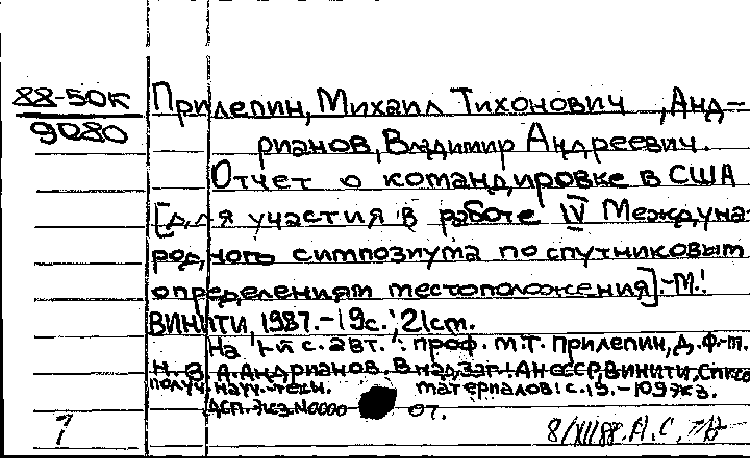 88-50К
9080
Прилепин, Михаил Тихонович, Анд-
рианов, Владимир Андреевич.
Отчет о командировке в США
[для участия в работе IV Междуна-
родного симпозиума по спутниковым
определениям местоположения].-М.:
ВИНИТИ, 1987.-19с.; 21см.
На с. авт.: проф. М.Т. Прилепин, д. ф.-м.
н. В.А. Андрианов. В надзаг.: АН СССР, ВИНИТИ, Список
получ. науч. материалов: с. 19.-10 экз.
Деп. экз. N0000 от.
7
8/XII 88. А.С.